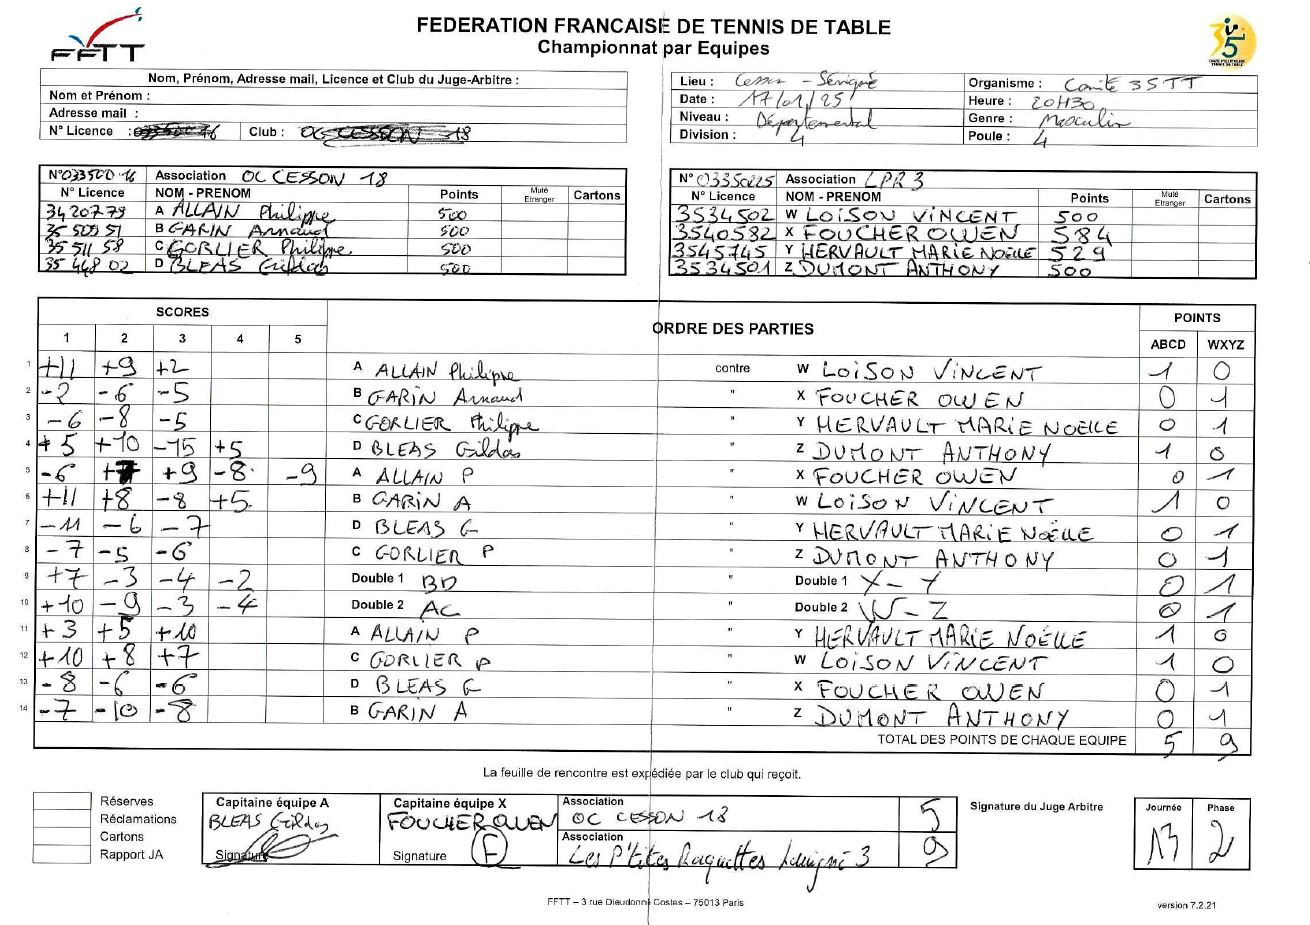 FEDERATION FRANCAISE DE TENNIS DE TABLE
Championnat par Equipes
FFTT
35
Nom, Prénom, Adresse mail, Licence et Club du Juge-Arbitre :
Nom et Prénom :
Adresse mail :
N° Licence : Club : OC CESSON 18
Lieu : Cesson - Sévigné Organisme : Comité 35 TT
Date : 17/01/25 Heure : 20H30
Niveau : Départemental Genre : Masculin
Division : 4 Poule : 4
N°03350016 Association OC CESSON 18
N° Licence NOM - PRENOM Points Muté Etranger Cartons
3420779 A ALLAIN Philippe 500
35 50951 B GARIN Arnaud 500
35 511 58 C GORLIER Philippe 500
35 448 02 D BLEAS Gildas 500
N°03350225 Association LPR 3
N° Licence NOM - PRENOM Points Muté Etranger Cartons
3534502 W LOISON VINCENT 500
3540582 X FOUCHER OWEN 584
3545745 Y HERVAULT MARIE NOËLLE 529
3534501 Z DUMONT ANTHONY 500
SCORES ORDRE DES PARTIES POINTS
1 2 3 4 5 ABCD WXYZ
1 +11 +9 +2 A ALLAIN Philippe contre W LOISON VINCENT 1 0
2 -2 -6 -5 B GARIN Arnaud " X FOUCHER OWEN 0 1
3 -6 -8 -5 C GORLIER Philippe " Y HERVAULT MARIE NOËLLE 0 1
4 +5 +10 -15 +5 D BLEAS Gildas " Z DUMONT ANTHONY 1 0
5 -6 +7 +9 -8 -9 A ALLAIN P " X FOUCHER OWEN 0 1
6 +11 +8 -8 +5 B GARIN A " W LOISON VINCENT 1 0
7 -11 -6 -7 D BLEAS G " Y HERVAULT MARIE NOËLLE 0 1
8 -7 -5 -6 C GORLIER P " Z DUMONT ANTHONY 0 1
9 +7 -3 -4 -2 Double 1 BD " Double 1 X-Y 0 1
10 +10 -9 -3 -4 Double 2 AC " Double 2 W-Z 0 1
11 +3 +5 +10 A ALLAIN P " Y HERVAULT MARIE NOËLLE 1 0
12 +10 +8 +7 C GORLIER P " W LOISON VINCENT 1 0
13 -8 -6 -6 D BLEAS G " X FOUCHER OWEN 0 1
14 -7 -10 -8 B GARIN A " Z DUMONT ANTHONY 0 1
TOTAL DES POINTS DE CHAQUE EQUIPE 5 9
La feuille de rencontre est expédiée par le club qui reçoit.
Réserves
Réclamations
Cartons
Rapport JA
Capitaine équipe A
BLEAS Gildas
Signature
Capitaine équipe X
FOUCHER OWEN
Signature F
Association
OC CESSON 18 5
Association
Les P'tites Raquettes Louvigné 3 9
Signature du Juge Arbitre
Journée Phase
13 2
FFTT – 3 rue Dieudonné Costes – 75013 Paris
version 7.2.21